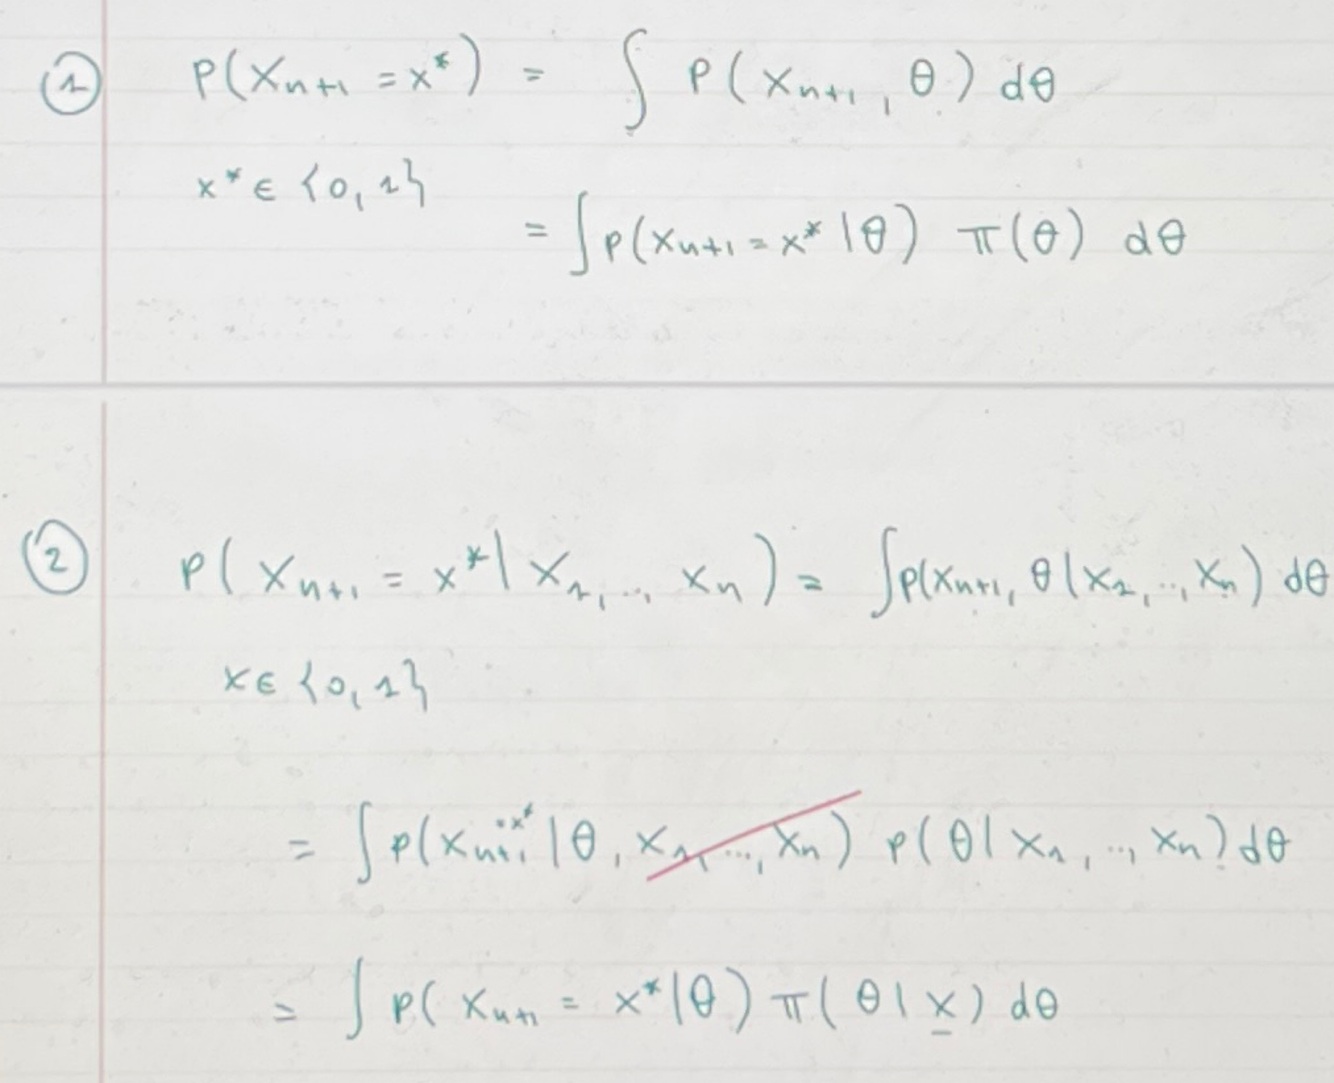 ① P(Xₙ₊₁ = x*) = ∫ P(Xₙ₊₁, θ) dθ
x* ∈ {0, 1}
= ∫ p(xₙ₊₁ = x* | θ) π(θ) dθ
② P(Xₙ₊₁ = x* | X₁, .., Xₙ) = ∫ p(xₙ₊₁, θ | x₁, .., xₙ) dθ
x ∈ {0, 1}
= ∫ p(xₙ₊₁ = x* | θ, x₁, .., xₙ) p(θ | x₁, .., xₙ) dθ
= ∫ p(xₙ₊₁ = x* | θ) π(θ | x̲) dθ